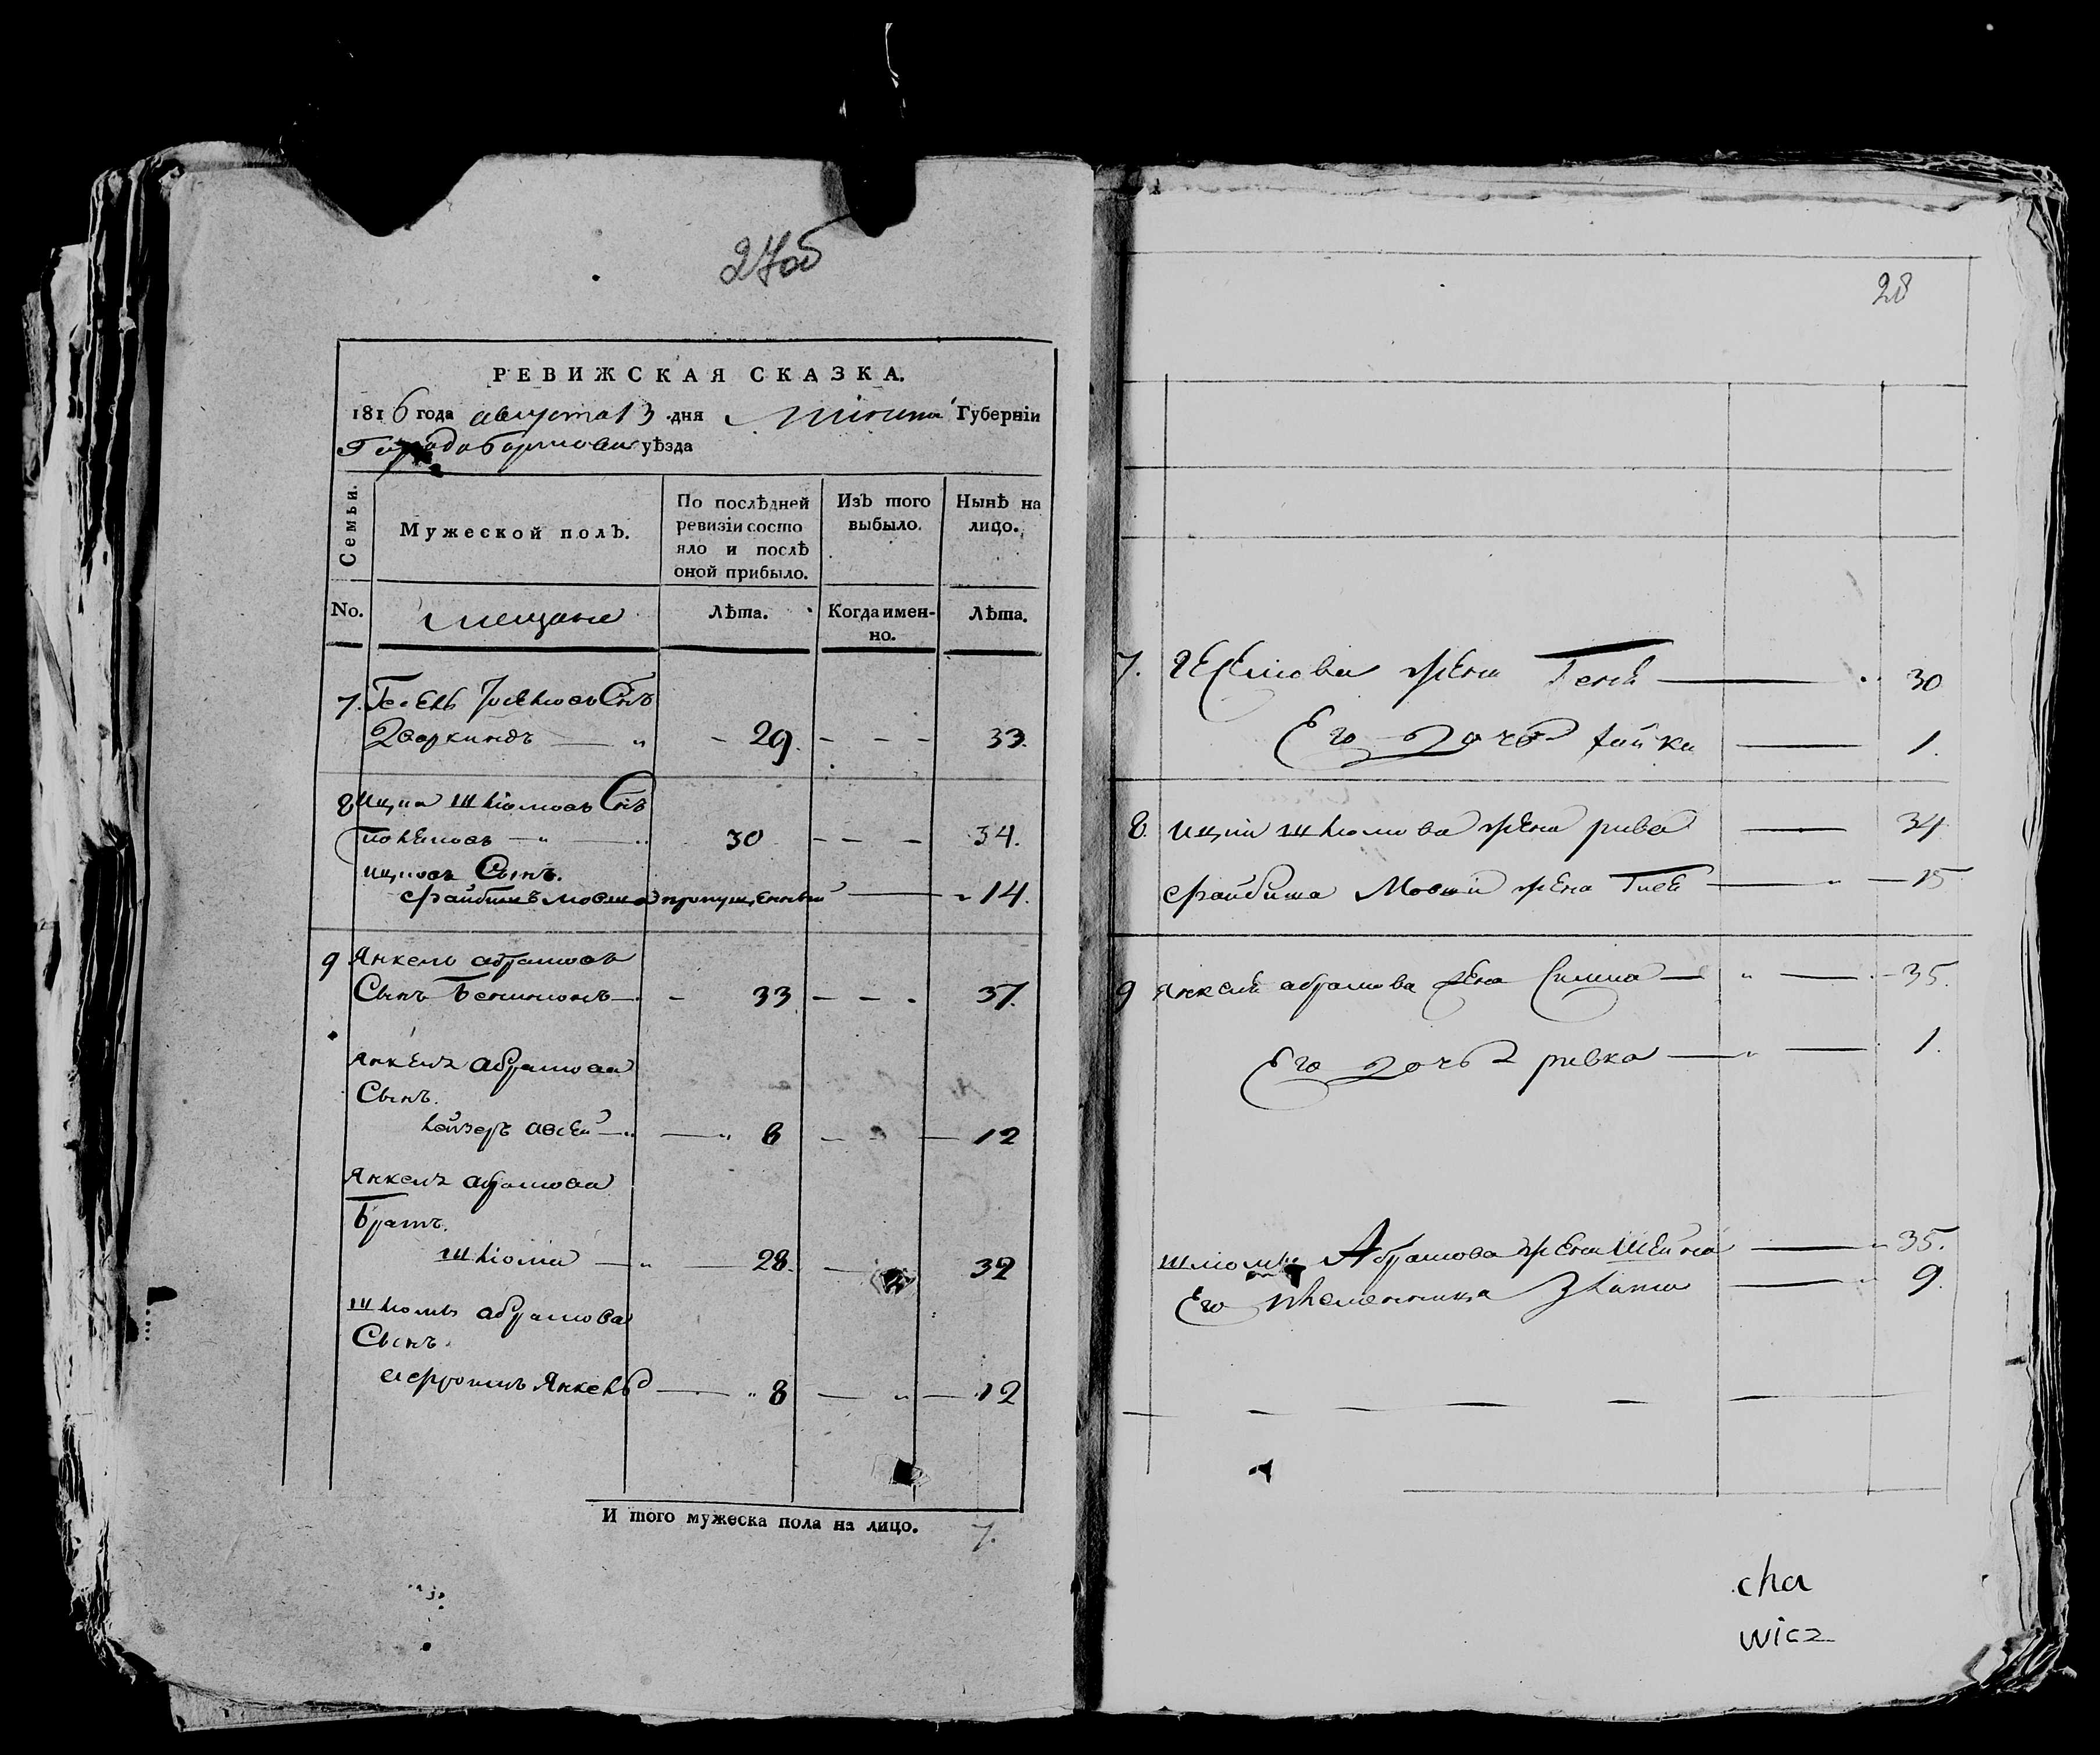 27об
РЕВИЖСКАЯ СКАЗКА.
1816 года августа 13 дня Губерніи
уѣзда
Семьи.
Мужеской полъ.
По послѣдней ревизіи состояло и послѣ оной прибыло.
Изъ того выбыло.
Нынѣ на лицо.
No.
мещане
Лѣта.
Когда именно.
Лѣта.
7. Сынъ
Дворкинъ — „ - 29. - - - 33.
8 Ицка Шлiомовъ Снъ
30 - - - 34.
Ицковъ Сынъ.
Файбишъ Мовша пропущенный — 14.
9 Янкель абрамовъ
Сынъ Бениминъ - 33 - - - 37.
Янкеля абрамова
Сынъ.
Лейзеръ Овсей — „ 8 - - 12
Янкеля абрамова
Братъ.
Шлiома — „ — 28. — 32
Шлiомы абрамова
Сынъ.
Янкель — „ 8 — „ — 12
И того мужеска пола на лицо. 7.
28
7. жена Геня — 30
Его дочь Хайка — 1.
8. Ицки Шлiомова жена рива — 34
Файбиша Мовши жена — 15
9 Янкеля абрамова жена — „ — 35.
Его дочь ривка — „ — 1.
Шлiомы Абрамова жена Шейна — „ 35.
Его племенница Злата — „ 9.
cha
wicz